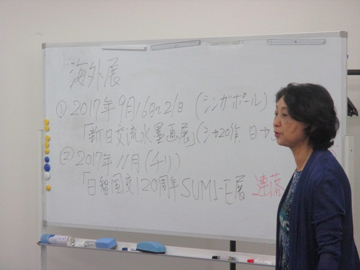 海外展
① 2017年9月16日~21日 (シンガポール)
「新日交流水墨画展」(シ→20名 日→
② 2017年11月 (チリ)
「日智国交120周年SUMI-E展